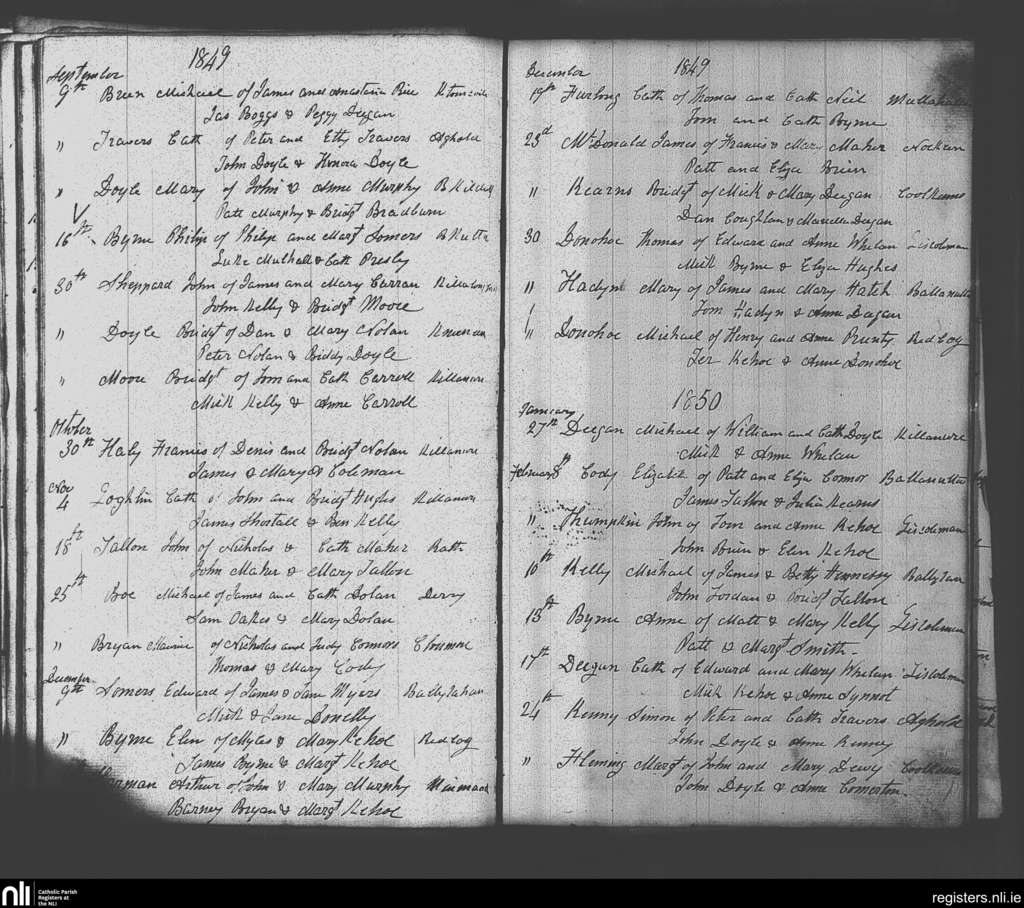 1849
September
9th Brien Michael of James and Anastasia
Jas Boggs & Peggy Deegan
" Travers Cath of Peter and Etty Travers Aghold
John Doyle & Honora Doyle
" Doyle Mary of John & Anne Murphy
Patt Murphy & Bridgt Bradburn
16th Byrne Philip of Philip and Margt Somers
Luke Mulhall & Cath Presby
30th Sheppard John of James and Mary Curran
John Kelly & Bridgt Moore
" Doyle Bridgt of Dan & Mary Nolan
Peter Nolan & Biddy Doyle
" Moore Bridgt of Tom and Cath Carroll Killanure
Mick Kelly & Anne Carroll
October
30th Haly Francis of Denis and Bridgt Nolan Killanure
James & Mary Coleman
Nov
4 Loghlin Cath of John and Bridgt Hughes Killanure
James Shortall & Ben Kelly
18th Tallon John of Nicholas & Cath Maher Rath
John Maher & Mary Tallon
25th Michael of James and Cath Dolan Derry
Sam Oakes & Mary Dolan
" Bryan Maurice of Nicholas and Judy Connors
Thomas & Mary Cody
December
9th Somers Edward of James & Jane Myers Ballytahan
Mick & Jane Donelly
" Byrne Elen of Myles & Mary Kehoe Redbog
James Byrne & Margt Kehoe
Arthur of John & Mary Murphy
Barney Bryan & Margt Kehoe
December 1849
19th Furlong Cath of Thomas and Cath Neil
Tom and Cath Byrne
23d McDonald James of Francis & Mary Maher
Patt and Eliza Brien
" Kearns Bridgt of Mick & Mary Deegan Coolkenno
Dan Coughlan & Marcella Deegan
30 Donohoe Thomas of Edward and Anne Whelan Liscoleman
Mick Byrne & Eliza Hughes
" Hadyn Mary of James and Mary Hatch
Tom Hadyn & Anne Deegan
" Donohoe Michael of Henry and Anne Prunty Redbog
Ter Kehoe & Anne Donohoe
1850
January
27th Deegan Michael of William and Cath Doyle Killanure
Mick & Anne Whelan
February Cody Elizabeth of Patt and Eliza Connor
James Tallon & Julia Kearns
" Thumpkin John of Tom and Anne Kehoe Liscoleman
John Brien & Elen Kehoe
10th Kelly Michael of James & Betty Hennessy
John Jordan & Bridgt Tallon
13th Byrne Anne of Matt & Mary Kelly Liscoleman
Patt & Margt Smith
17th Deegan Cath of Edward and Mary Whelan Liscoleman
Mick Kehoe & Anne Synnot
24th Kenny Simon of Peter and Cath Travers Aghold
John Doyle & Anne Kenney
" Fleming Margt of John and Mary Dewy
John Doyle & Anne Comerton
nli
Catholic Parish
Registers at
the NLI
registers.nli.ie